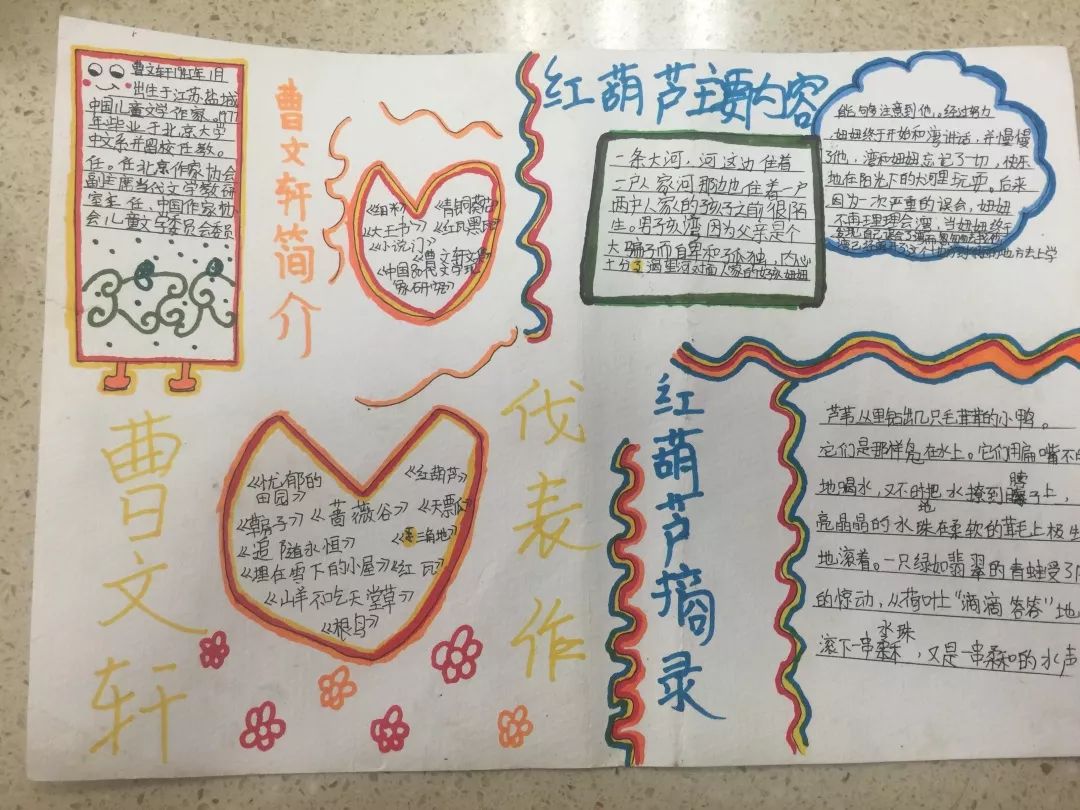 曹文轩1954年1月
出生于江苏盐城
中国儿童文学作家。1977
年毕业于北京大学
中文系并留校任教。
任。任北京作家协会
副主席当代文学教研
室主任、中国作家协
会儿童文学委员会委员
曹文轩简介
《红瓦黑瓦》
《青铜葵花》
《大王书》
《小说门》
《曹文轩文集》
《中国80代文学现
象研究》
曹文轩
伐表作
《忧郁的
田园》
《红葫芦》
《蔷薇谷》
《追随永恒》
《三角地》
《埋在雪下的小屋》《红瓦》
《山羊不吃天堂草》
《根鸟》
红葫芦主要内容
一条大河，河这边住着
一户人家河那边也住着一户
两户人家的孩子之前很陌
生。男孩湾因为父亲是个
大骗子而自卑和孤独，内心
十分渴望河对面人家的女孩妞妞
能够注意到他，。经过努力
妞妞终于开始和湾讲话，并慢慢
了他，湾和妞妞忘记了一切，快乐
地在阳光下的大河里玩耍。后来
因为一次严重的误会，妞妞
不再理理会湾，当妞妞终于
地方去上学
红葫芦摘录
芦苇丛里钻出几只毛茸茸的小鸭。
它们是那样凫在水上。它们用扁嘴不
地喝水，又不时把水撩到脖子上，
亮晶晶的水珠在柔软的茸毛上极生
地滚着。一只绿如翡翠的青蛙受了
的惊动，从荷叶上“滴滴答答”地
滚下一串水珠，又是一串柔和的水声